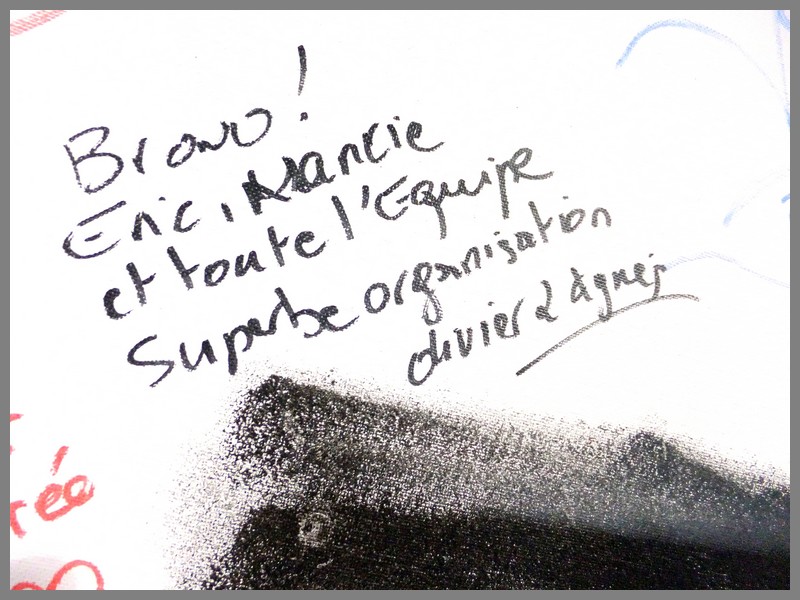 Bravo!
Eric, Nancie
et toute l'Equipe
Superbe organisation
olivier & Agnès
rée